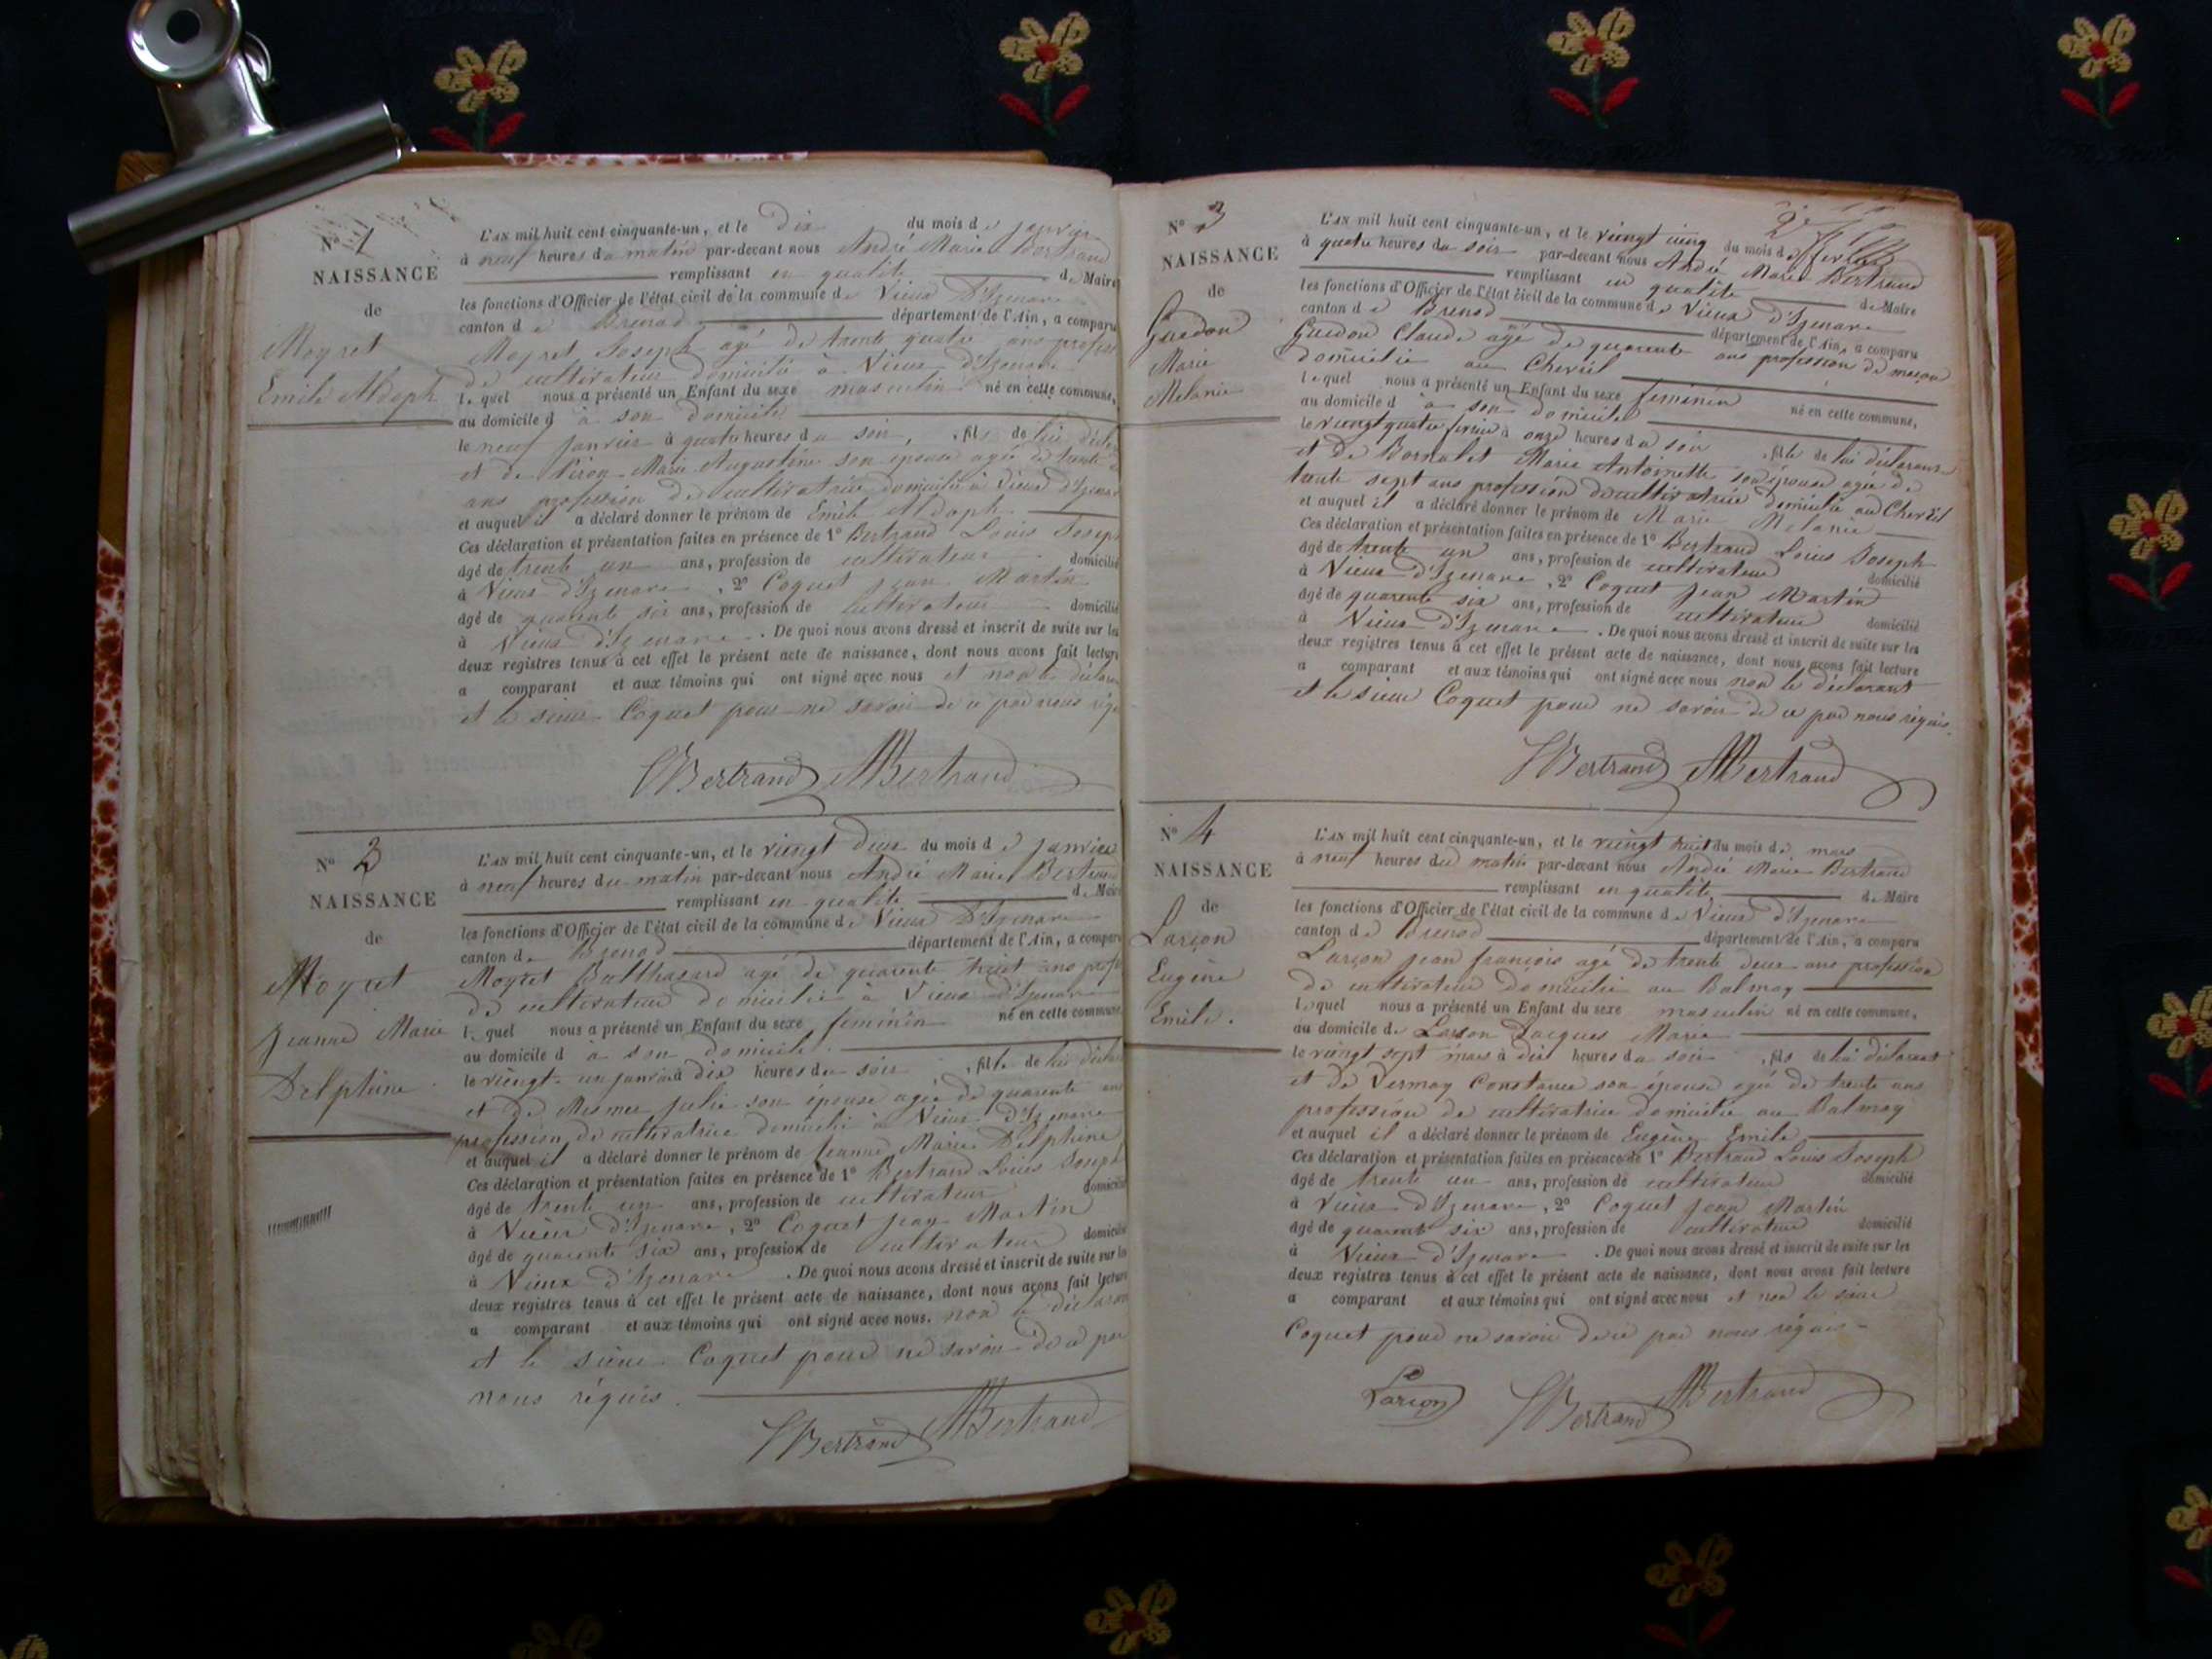 N° 1
NAISSANCE
de
Moyret
Emile Adolph
L'AN mil huit cent cinquante-un, et le Dix du mois de janvier
à neuf heures du matin par-devant nous André Marie Bertrand
remplissant en qualité de Maire
les fonctions d'Officier de l'état civil de la commune de Vieux d'Izenave
canton de Brenod département de l'Ain, a comparu
Moyret Joseph agé de trente quatre ans profess
de cultivateur domicilié à Vieux d'Izenave
lequel nous a présenté un Enfant du sexe masculin né en cette commune,
au domicile d à son domicile
le neuf janvier à quatre heures du soir, fils de lui décla
et de Piron Marie Augustine son épouse agée de trente
ans profession de cultivatrice domicilié à Vieux d'Izenave
et auquel il a déclaré donner le prénom de Emile Adolph
Ces déclaration et présentation faites en présence de 1° Bertrand Louis Joseph
âgé de trente un ans, profession de cultivateur domicilié
à Vieux d'Izenave, 2° Coquet Jean Martin
âgé de quarente six ans, profession de cultivateur domicilié
à Vieux d'Izenave. De quoi nous avons dressé et inscrit de suite sur les
deux registres tenus à cet effet le présent acte de naissance, dont nous avons fait lecture
a comparant et aux témoins qui ont signé avec nous et non le déclarant
et le sieur Coquet pour ne savoir de ce par nous requis
LBertrand AMBertrand
N° 2
NAISSANCE
de
Moyret
Jeanne Marie
Delphine
L'AN mil huit cent cinquante-un, et le vingt deux du mois de janvier
à neuf heures du matin par-devant nous André Marie Bertrand
remplissant en qualité de Maire
les fonctions d'Officier de l'état civil de la commune de Vieux d'Izenave
canton de Brenod département de l'Ain, a comparu
Moyret Balthazard agé de quarente huit ans profe
de cultivateur domicilié à Vieux d'Izenave
lequel nous a présenté un Enfant du sexe féminin né en cette commune
au domicile d à son domicile
le vingt-un janvier à dix heures du soir, fille de lui décla
et de Mermer Julie son épouse agée de quarente ans
profession de cultivatrice domicilié à Vieux d'Izenave
et auquel il a déclaré donner le prénom de Jeanne Marie Delphine
Ces déclaration et présentation faites en présence de 1° Bertrand Louis Joseph
âgé de trente un ans, profession de cultivateur domicilié
à Vieux d'Izenave, 2° Coquet Jean Martin
âgé de quarente six ans, profession de cultivateur domicilié
à Vieux d'Izenave. De quoi nous avons dressé et inscrit de suite sur les
deux registres tenus à cet effet le présent acte de naissance, dont nous avons fait lecture
a comparant et aux témoins qui ont signé avec nous. non le déclarant
et le sieur Coquet pour ne savoir de ce par
nous réquis.
LBertrand AMBertrand
N° 3
NAISSANCE
de
Guedon
Marie
Melanie
L'AN mil huit cent cinquante-un, et le vingt cinq du mois de fevrier
à quatre heures du soir par-devant nous André Marie Bertrand
remplissant en qualité de Maire
les fonctions d'Officier de l'état civil de la commune de Vieux d'Izenave
canton de Brenod département de l'Ain, a comparu
Guedon Claude agé de quarente ans profession de maçon
domicilié au Chevril
lequel nous a présenté un Enfant du sexe féminin né en cette commune,
au domicile d à son domicile
le vingt quatre fevrier à onze heures du soir, fille de lui déclarant
et de Bornalet Marie Antoinette son épouse agée de
trente sept ans profession de cultivatrice domicilié au Chevril
et auquel il a déclaré donner le prénom de Marie Melanie
Ces déclaration et présentation faites en présence de 1° Bertrand Louis Joseph
âgé de trente un ans, profession de cultivateur domicilié
à Vieux d'Izenave, 2° Coquet Jean Martin
âgé de quarente six ans, profession de cultivateur domicilié
à Vieux d'Izenave. De quoi nous avons dressé et inscrit de suite sur les
deux registres tenus à cet effet le présent acte de naissance, dont nous avons fait lecture
a comparant et aux témoins qui ont signé avec nous non le déclarant
et le sieur Coquet pour ne savoir de ce par nous réquis.
LBertrand AMBertrand
N° 4
NAISSANCE
de
Larçon
Eugène
Emile.
L'AN mil huit cent cinquante-un, et le vingt huit du mois de mars
à neuf heures du matin par-devant nous André Marie Bertrand
remplissant en qualité de Maire
les fonctions d'Officier de l'état civil de la commune de Vieux d'Izenave
canton de Brenod département de l'Ain, a comparu
Larçon jean françois agé de trente deux ans profession
de cultivateur domicilié au Balmay
lequel nous a présenté un Enfant du sexe masculin né en cette commune,
au domicile de Larçon Jacques Marie
le vingt sept mars à dix heures du soir, fils de lui déclarant
et de Vermay Constance son épouse agée de trente ans
profession de cultivatrice domicilié au Balmay
et auquel il a déclaré donner le prénom de Eugène Emile
Ces déclaration et présentation faites en présence de 1° Bertrand Louis Joseph
âgé de trente un ans, profession de cultivateur domicilié
à Vieux d'Izenave, 2° Coquet Jean Martin
âgé de quarente six ans, profession de cultivateur domicilié
à Vieux d'Izenave. De quoi nous avons dressé et inscrit de suite sur les
deux registres tenus à cet effet le présent acte de naissance, dont nous avons fait lecture
a comparant et aux témoins qui ont signé avec nous et non le sieur
Coquet pour ne savoir de ce par nous réquis
Larçon LBertrand AMBertrand